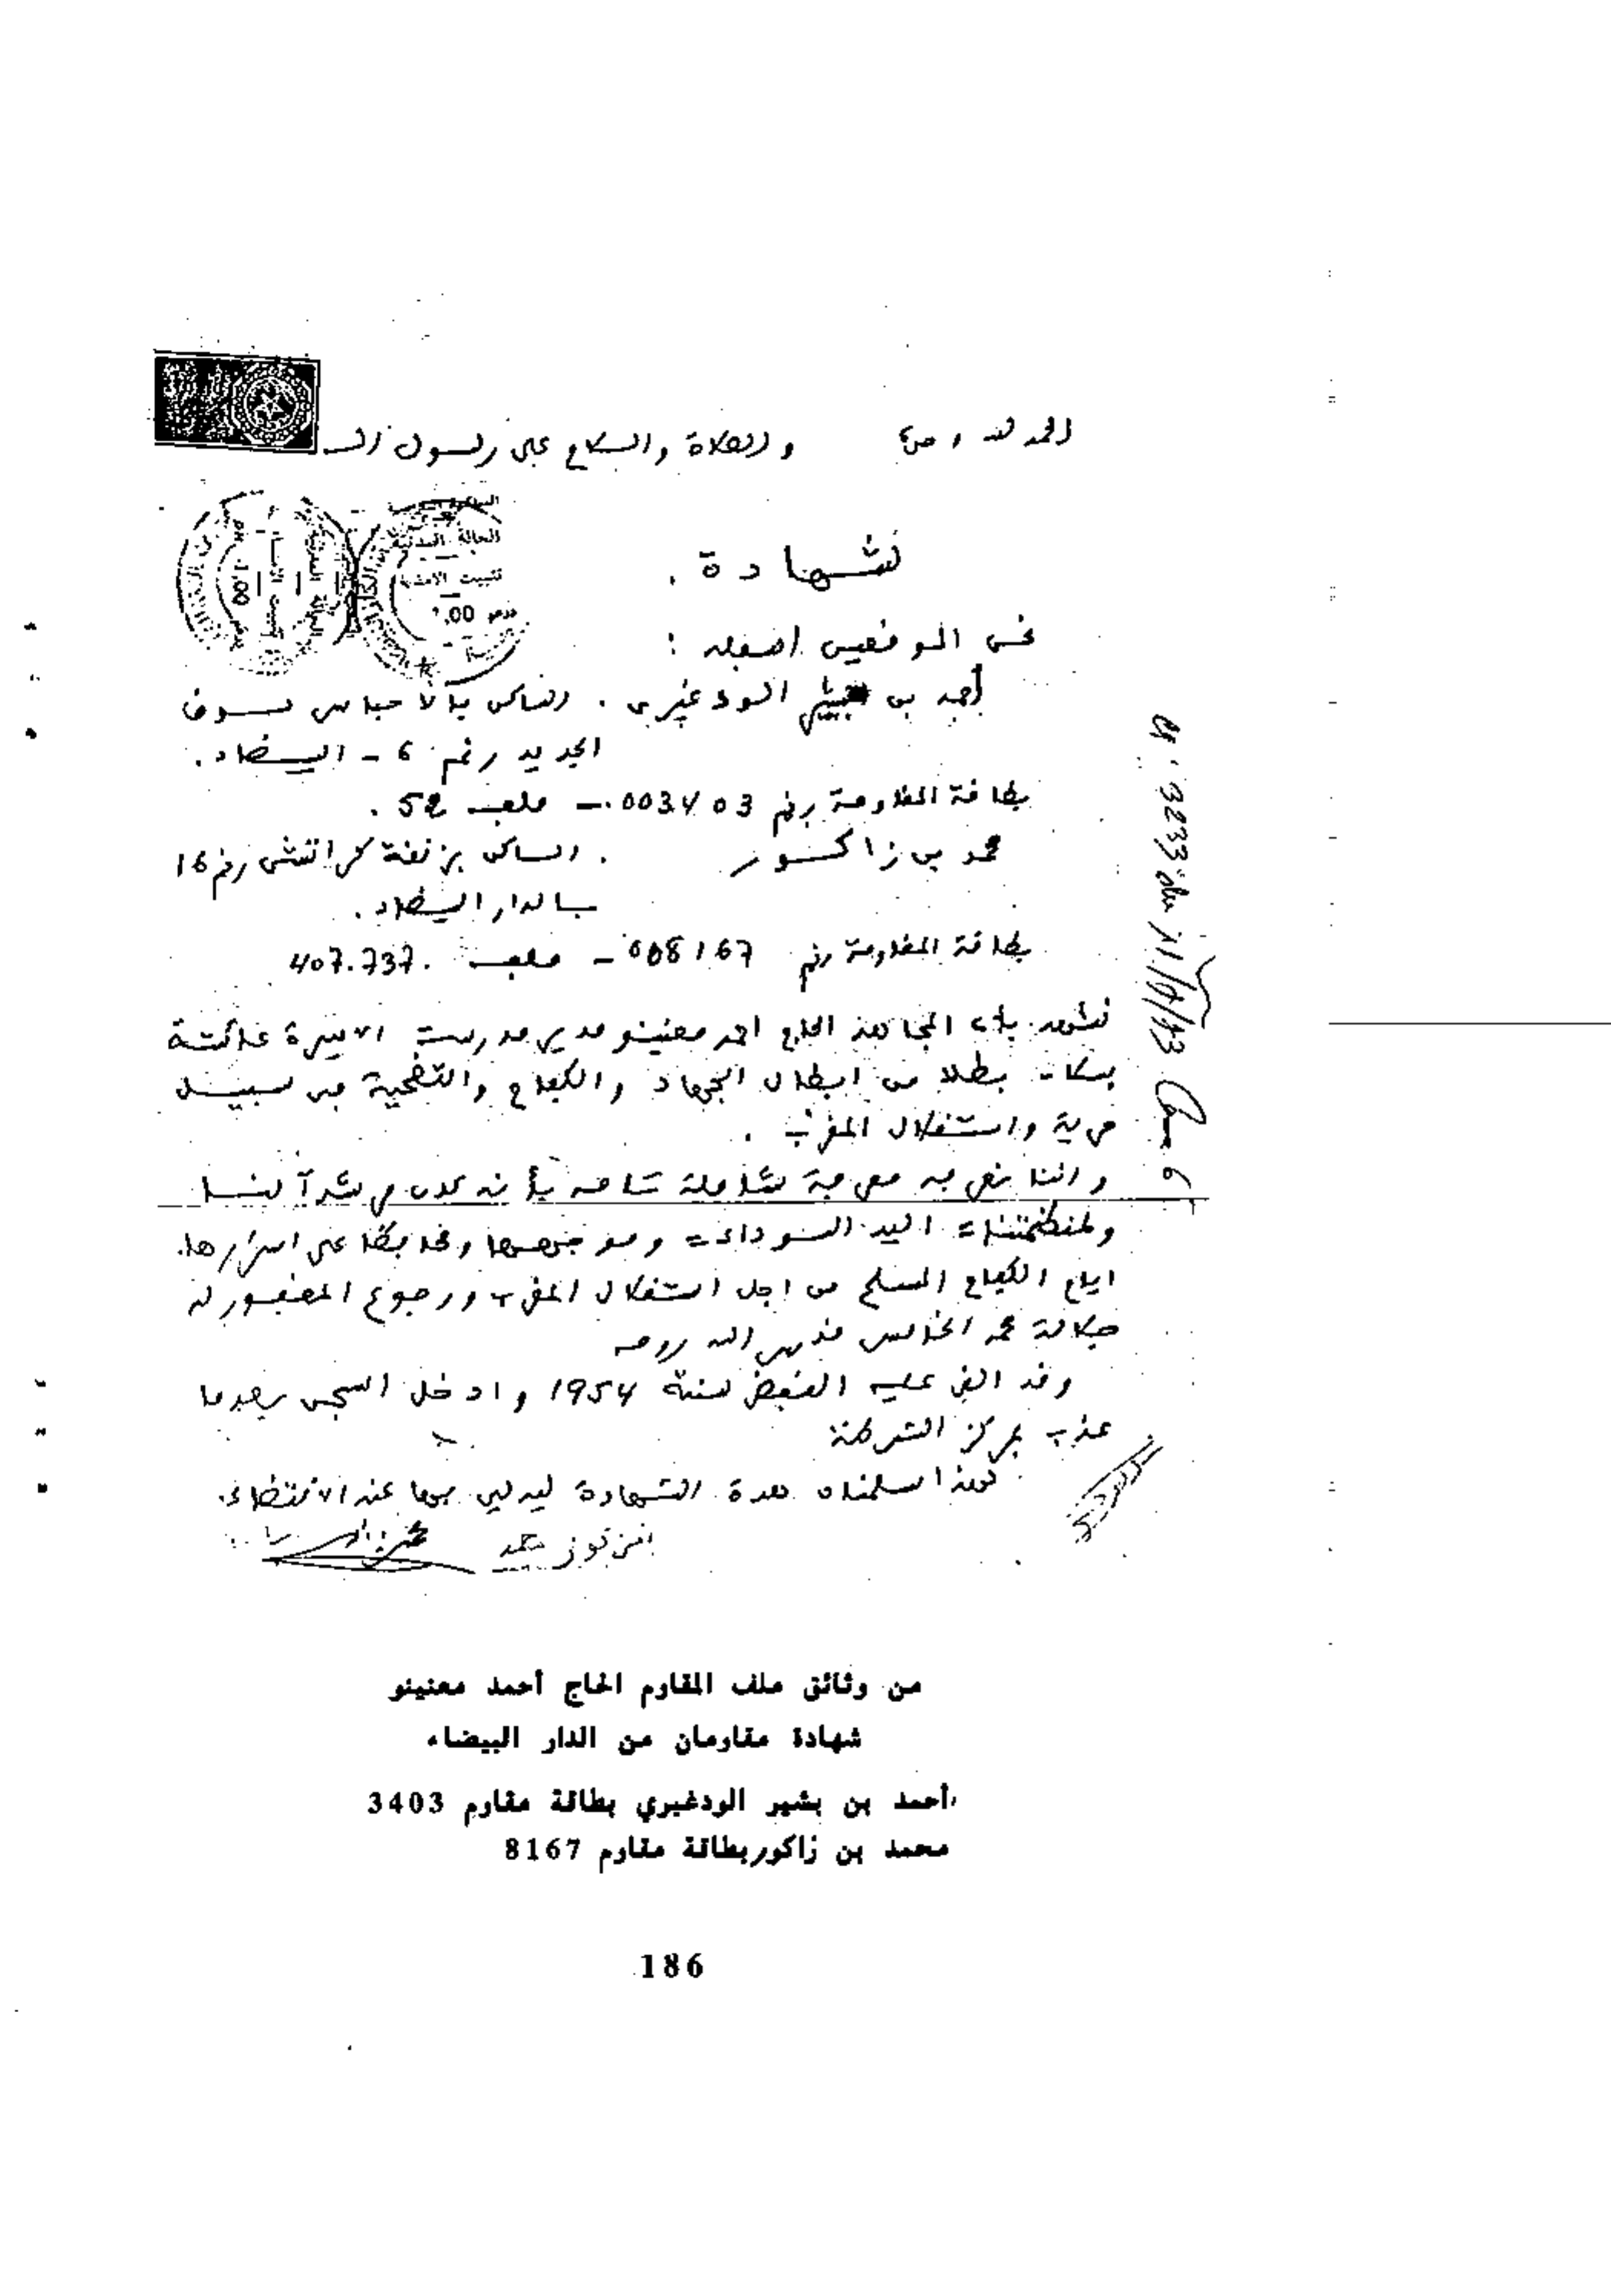 الحمد لله وحده والصلاة والسلام على رسول الله
شهادة .
نحن الموقعين اسفله :
أحمد بن بشير الودغيري . الساكن بالاحباس سوق
الجديد رقم 6 - البيضاء .
بطاقة المقاومة رقم 003403 - ملف 52 .
محمد بن زاكور . الساكن بزنقة كراتشي رقم 16
بالدار البيضاء .
بطاقة المقاومة رقم 008167 - ملف 407.737.
نشهد بان المجاهد الحاج احمد معنينو مدير مدرسة الاميرة عائشة
بسلا - بطلا من ابطال الجهاد والكفاح والتضحية في سبيل
حرية واستقلال المغرب .
واننا نعرفه معرفة شاملة تامه بأنه كان مرشدآ لنا
ولمنظمتنا = اليد السوداء = وموجهها ومحافظا على اسرارها.
ايام الكفاح المسلح من اجل استقلال المغرب ورجوع المغفور له
جلالة محمد الخامس قدس الله روحه
وقد القي عليه القبض سنة 1954 وادخل السجن بعدما
عذب بمركز الشرطة
لهذا سلمناه هده الشهادة ليدلي بها عند الاقتضاء.
من وثائق ملف المقاوم الحاج أحمد معنينو
شهادة مقاومان من الدار البيضاء
أحمد بن بشير الودغيري بطاقة مقاوم 3403
محمد بن زاكور بطاقة مقاوم 8167
186